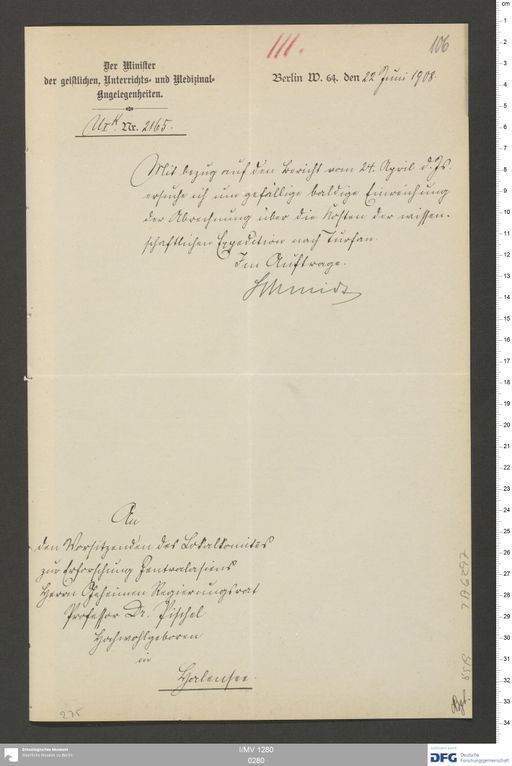 III.
106
Der Minister
der geistlichen, Unterrichts- und Medizinal-
Angelegenheiten.
Berlin W. 64. den 22. Juni 1908.
U I K. Nr. 2165.
Mit bezug auf den Bericht vom 24. April d. Js.
ersuche ich um gefällige baldige Einreichung
der Abrechnung über die Kosten der wissen-
schaftlichen Expedition nach Turfan.
Im Auftrage.
Schmidt
An
den Vorsitzenden des Lokalkomites
zur Erforschung Zentralasiens
Herrn Geheimen Regierungsrat
Professor Dr. Pischel
Hochwohlgeboren
in
Halensee.
275
Ethnologisches Museum
Staatliche Museen zu Berlin
I/MV 1280
0280
DFG
Deutsche
Forschungsgemeinschaft